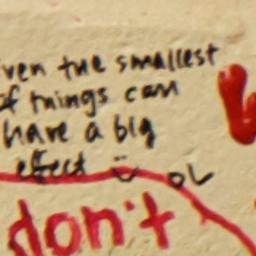 ven the smallest
f things can
have a big
effect
don't